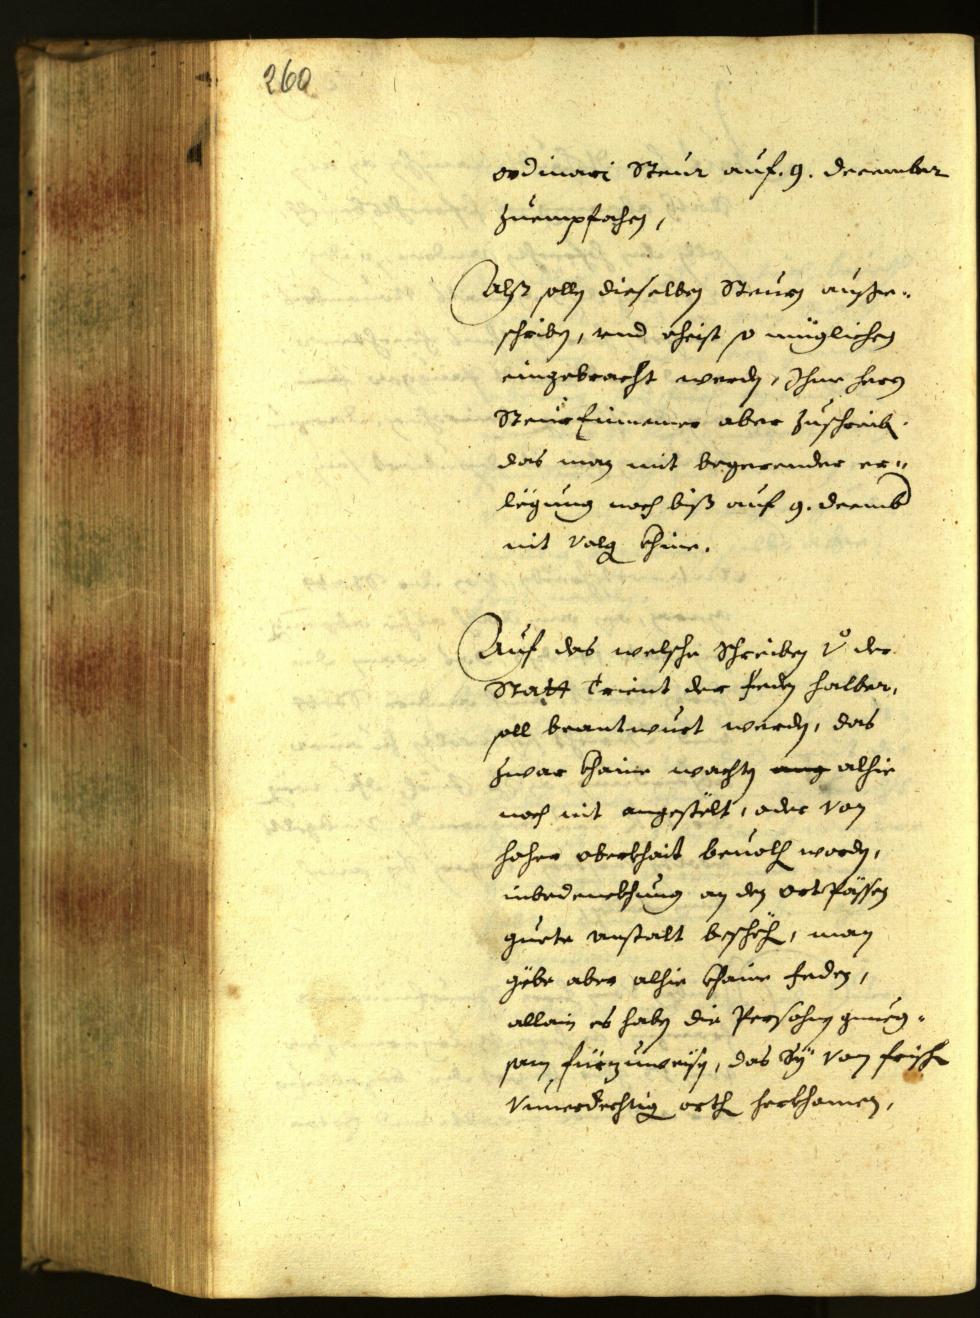 260
ordinari Steur auf. 9. december
zuempfachen,
Alß sollen dieselben Steuren außge-
schriben, vnd eheist so müglichen
eingebracht werden, Ihme herrn
Steur Einnemer aber zuschreiben
das man mit begerender er-
legung noch biß auf 9. decemb
nit volgen khüne.
Auf das welsche Schreiben vo der
Statt Trient der feden halber,
soll beantwurt werden, das
zwar khaine wachten ang alhie
noch nit angestelt, oder von
hoher oberkhait beuolhen worden,
inbedenckhung an den ort Pässen
guete anstalt beschehen, man
gebe aber alhie khaine feden,
allain es haben die Persohnen gnueg-
sam fürzuweisen, das Sy von frischen
vnuerdechtigen orthen herkhomen,